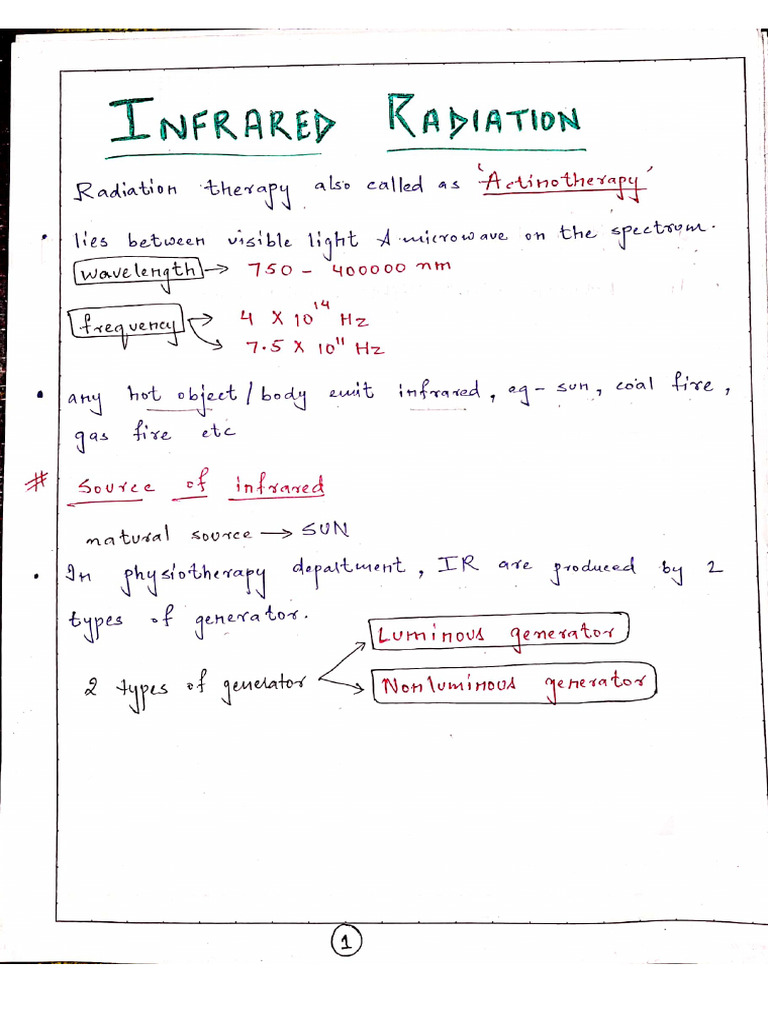 INFRARED RADIATION
Radiation therapy also called as 'Actinotherapy'
• lies between visible light & microwave on the spectrum.
wavelength → 750 - 400000 nm
frequency → 4 X 10¹⁴ Hz
→ 7.5 X 10¹¹ Hz
• any hot object / body emit infrared, eg - sun, coal fire,
gas fire etc
# Source of infrared
natural source → SUN
• In physiotherapy department, IR are produced by 2
types of generator.
Luminous generator
2 types of generator
Nonluminous generator
1